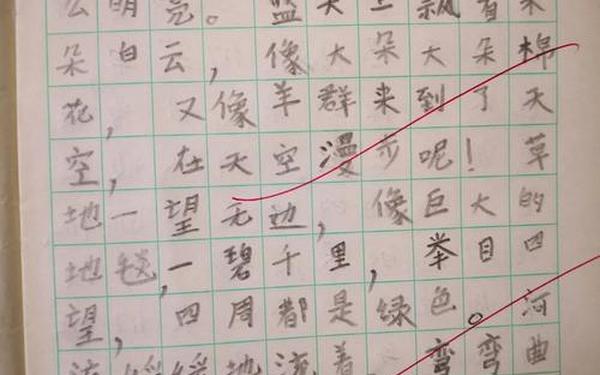 么明亮。蓝天上飘着朵
朵白云，像大朵大朵棉
花，又像羊群来到了天
空，在天空漫步呢！草
地一望无边，像巨大的
地毯，一碧千里，举目四
望，四周都是绿色。河
流缓缓地流着，弯弯曲